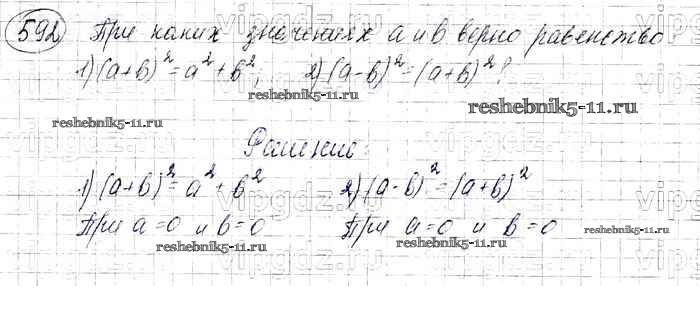 592 При каких значениях а и в верно равенство
1) (а+в)² = а² + в²; 2) (а-в)² = (а+в)²?
reshebnik5-11.ru
reshebnik5-11.ru
reshebnik5-11.ru
Решение:
1) (а+в)² = а² + в² 2) (а-в)² = (а+в)²
При а=0 и в=0 При а=0 и в=0
reshebnik5-11.ru
reshebnik5-11.ru
reshebnik5-11.ru